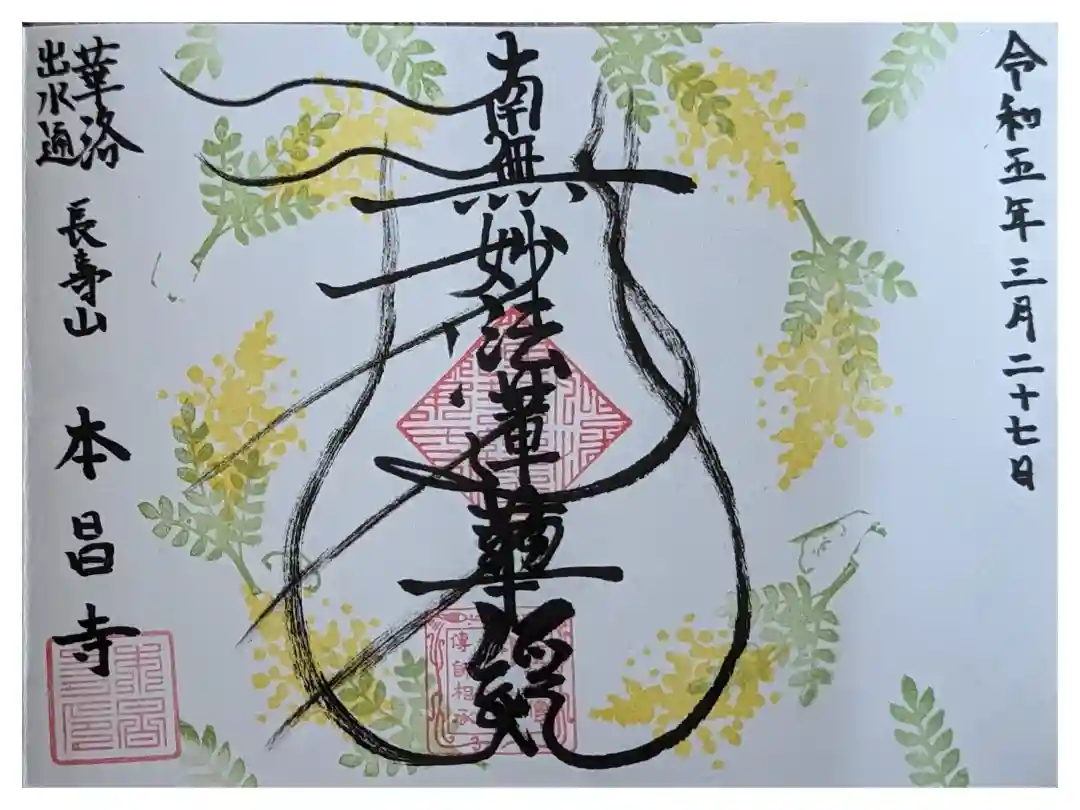 令和五年三月二十七日
南無妙法蓮華經
華洛
出水通
長寿山
本昌寺